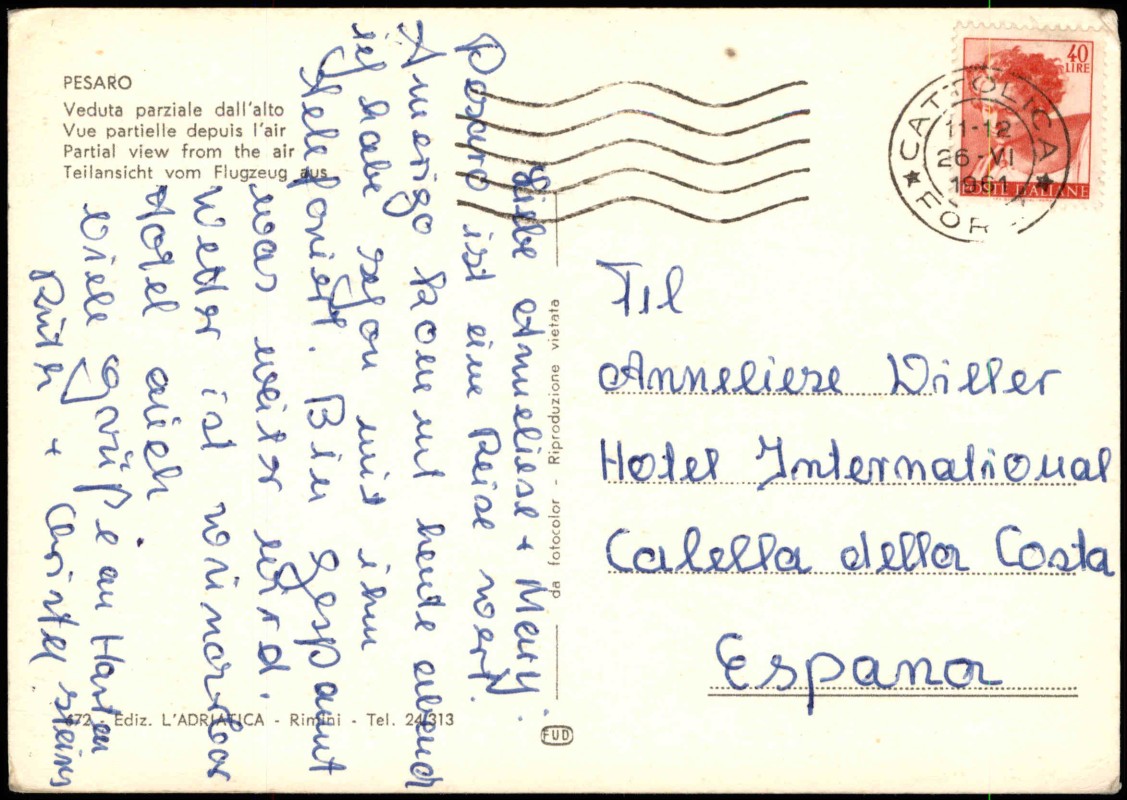 PESARO
Veduta parziale dall'alto
Vue partielle depuis l'air
Partial view from the air
Teilansicht vom Flugzeug aus
Liebe Anneliese + Mary.
Pesaro ist eine Reise wert.
Amerigo kommt heute abend
ich habe schon mit ihm
telefoniert. Bin gespannt
was weiter wird.
Wetter ist wunderbar
Hotel auch
Viele Grüße an
Ruth + Christel
da fotocolor - Riproduzione vietata
672 - Ediz. L'ADRIATICA - Rimini - Tel. 24313
FUD
40
LIRE
POSTE ITALIANE
CATTOLICA
11-12
26-VI
1961
FOR
Anneliese Willer
Hotel International
Calella della Costa
Espana